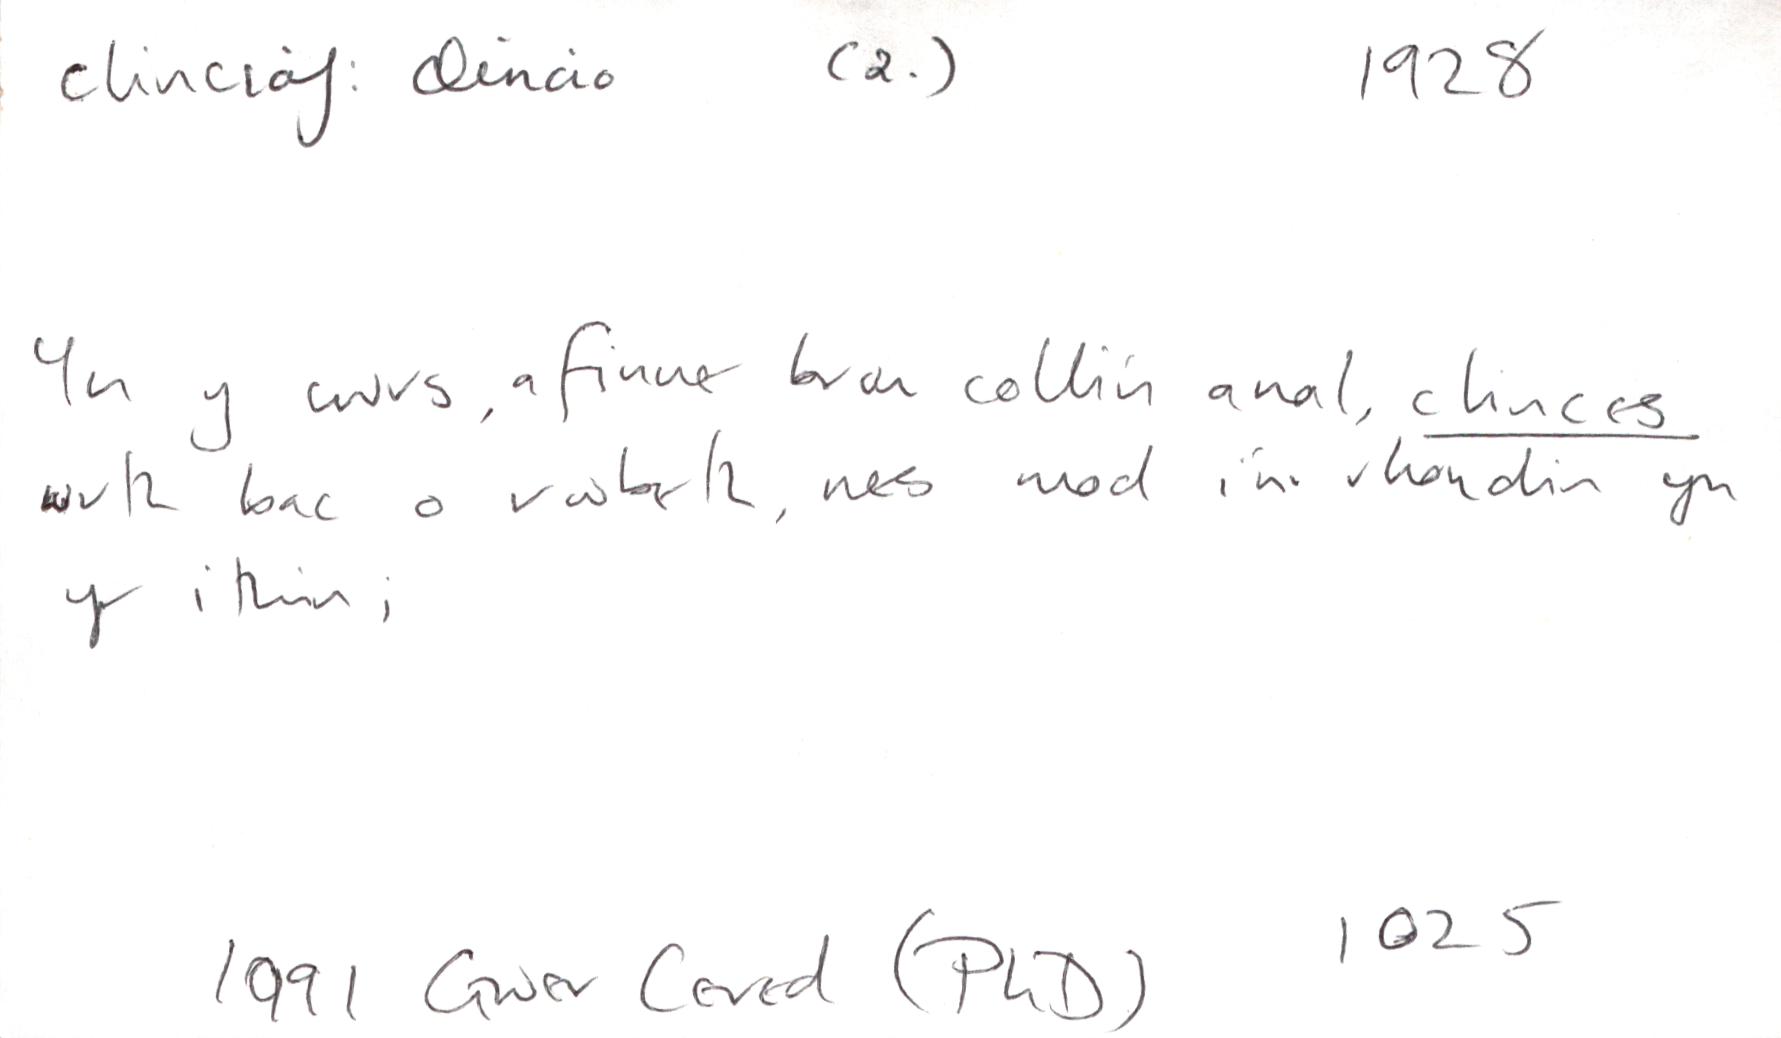 clinciaf: clincio (2.) 1928
Yn y cwrs, a finne bron collin anal, clinces
wrth bac o rwbeth, nes mod i'n rhondin yn
yr ithin;
1991 Gwer Cered (PhD) 1025